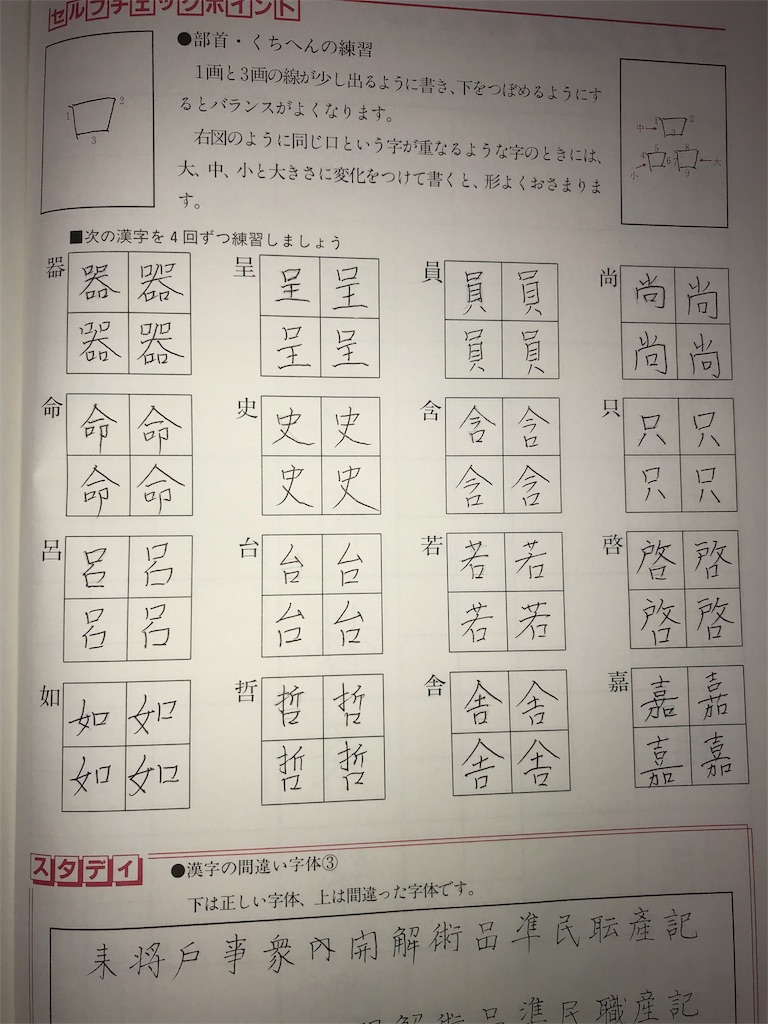 セルフチェックポイント
●部首・くちへんの練習
1画と3画の線が少し出るように書き、下をつぼめるようにす
るとバランスがよくなります。
右図のように同じ口という字が重なるような字のときには、
大、中、小と大きさに変化をつけて書くと、形よくおさまりま
す。
1 2
3
中→ 1 2
3
4 5 6 7 8
小 ←大
9
■次の漢字を4回ずつ練習しましょう
器 器 器 呈 呈 呈 員 員 員 尚 尚 尚
器 器 呈 呈 員 員 尚 尚
命 命 命 史 史 史 含 含 含 只 只 只
命 命 史 史 含 含 只 只
呂 呂 呂 台 台 台 若 若 若 啓 啓 啓
呂 呂 台 台 若 若 啓 啓
如 如 如 哲 哲 哲 舎 舎 舎 嘉 嘉 嘉
如 如 哲 哲 舎 舎 嘉 嘉
スタディ
●漢字の間違い字体③
下は正しい字体、上は間違った字体です。
将 戸 事 衆 内 開 解 術 品 準 民 産 記
解 術 品 準 民 職 産 記